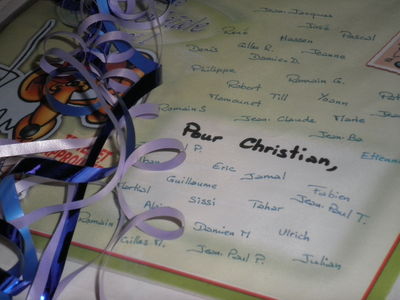 Jean-Jacques
José Pascal
René Hassen
Denis Gilles R. Jeanne
Damien D.
Philippe Romain G.
Robert
Flamounet Till Yoann
Romain S Jean-Claude Flavie
Jean-Ba
Pour Christian,
Etienne
P. Eric Jamal
Guillaume Fabien
Martial Sissi Jean-Paul T.
Tahar
Romain Damien M Ulrich
Gilles M. Jean-Paul P. Julian